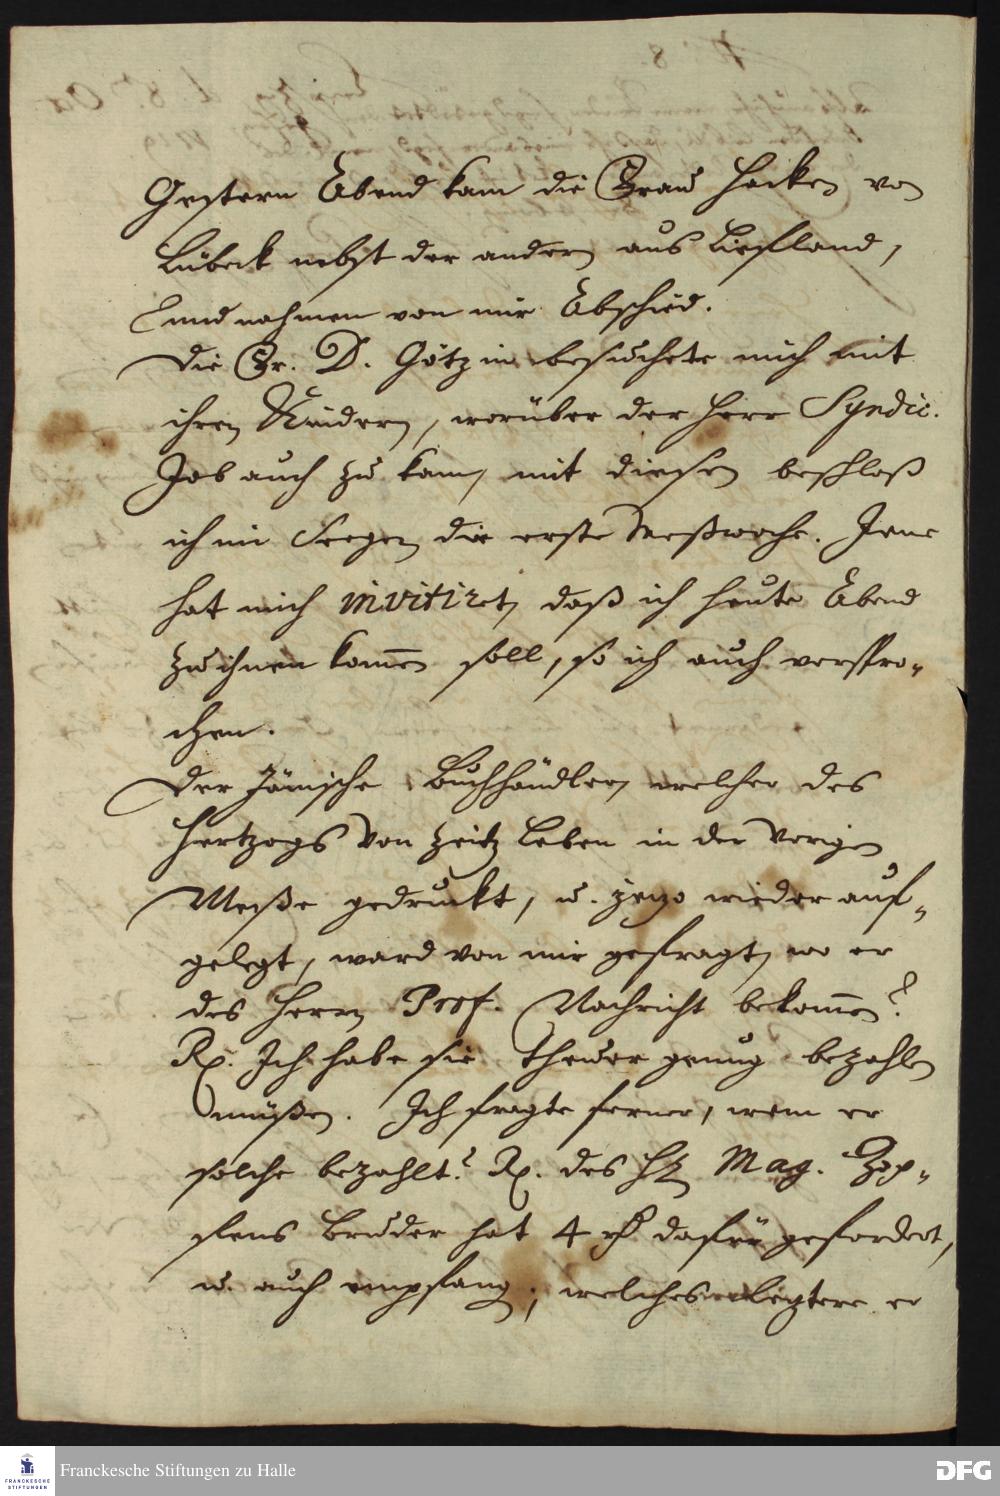 Gestern Abend kam die Frau Hecken von
Lübeck nebst der andern aus Liefland,
und nahmen von mir Abschied.
Die Fr. D. Götzin besuchete mich mit
ihren Kindern, worüber der Herr Syndic.
Job auch zu kam, mit diesen beschloß
ich im Seegen die erste Meßwoche. Jene
hat mich invitiret, daß ich heute Abend
zu ihnen kom̄en soll, so ich auch verspro-
chen.
Der Jänische Buchhändler, welcher des
Hertzogs von Zeitz Leben in der vorigen
Meße gedruckt, u. jezo wieder auf-
gelegt, ward von mir gefragt, wo er
des Herrn Prof. Nachricht bekom̄en?
Rx. Ich habe sie theuer genug bezahlen
müßen. Ich fragte ferner, wem er
solche bezahlt? Rx. des H. Mag. Zop-
fens Bruder hat 4 rh dafür gefordert,
u. auch empfang; welches leztere er
Franckesche Stiftungen zu Halle
FRANCKESCHE
STIFTUNGEN
DFG